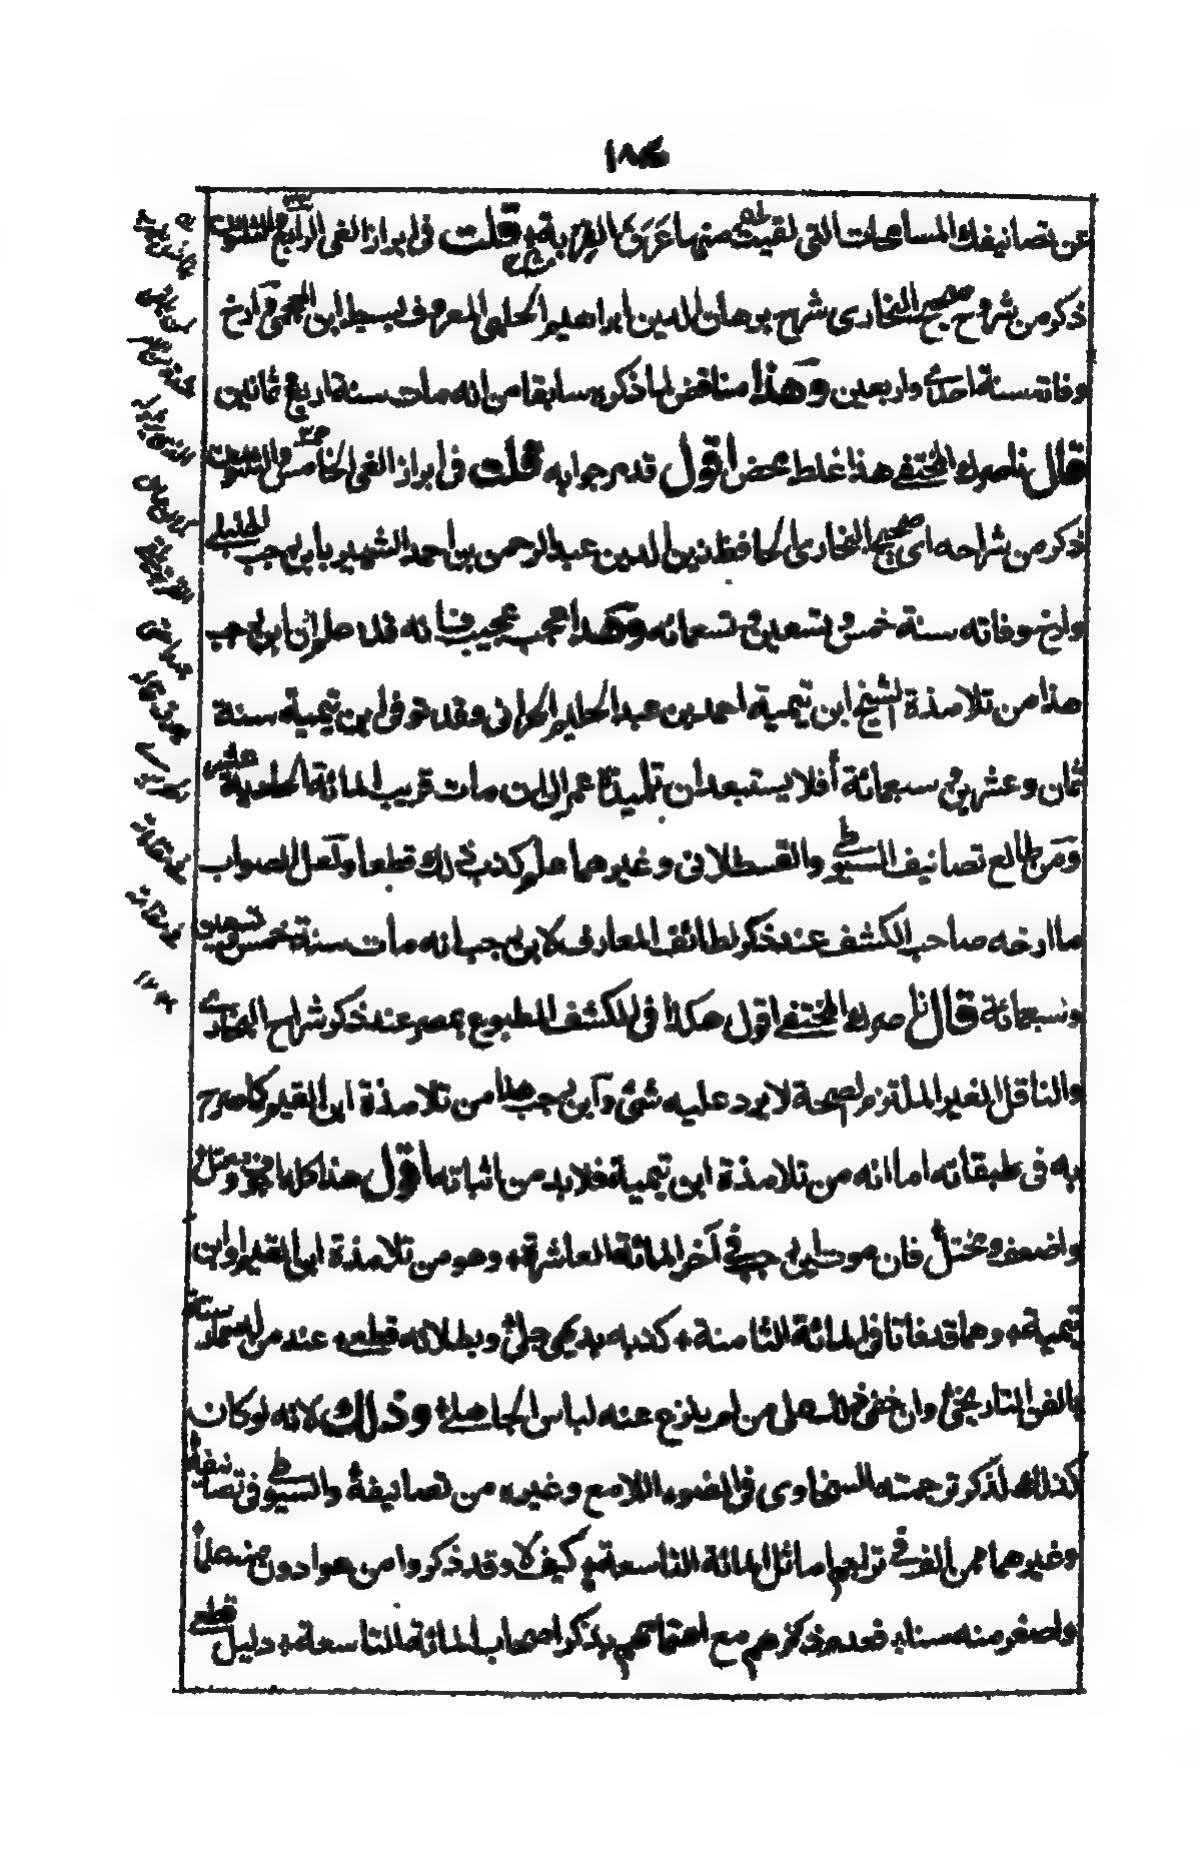 ١٨٤
عن تصانيفك المسامحات التى لقيت منها عرق القربة قلت فى ابراز الغى الرابع والثلثون
ذكر من شروح صحيح البخارى شرح برهان الدين ابراهيم الحلبى المعروف بسبط ابن العجمى وآرخ
وفاته سنة احدى واربعين وهذا مناقض لما ذكره سابقا من انه مات سنة اربع ثمانين
قال ناصرك المختفى هذا غلط محض اقول قد مر جوابه قلت فى ابراز الغى الخامس والثلثون
ذكر من شراحه اى صحيح البخارى الحافظ زين الدين عبد الرحمن بن احمد الشهير بابن رجب الحنبلى
وارخ وفاته سنة خمس وتسعين وتسعمائه وهذا عجب عجيب فانه قد علم ان ابن رجب
هذا من تلامذة الشيخ ابن تيمية احمد بن عبد الحليم الحرانى وقد توفى ابن تيمية سنة
ثمان وعشرين وسبعمائة أفلا يستبعد ان تلميذة عمر الى ان مات قريب المائة العاشرة
ومن طالع تصانيف السيوطى والقسطلانى وغيرهما علم كذب ذلك قطعا ولعل الصواب
ما ارخه صاحب الكشف عند ذكر لطائف المعارف لابن رجب انه مات سنة خمس وتسعين
وسبعمائة قال ناصرك المختفى اقول هكذا فى الكشف المطبوع بمصر عند ذكر شراح البخارى
والناقل الغير الملتزم لصحة لا يرد عليه شئ وآبن رجب هذا من تلامذة ابن القيم كما صرح
به فى طبقاته اما انه من تلامذة ابن تيمية فلا بد من اثباته اقول هذا كله
واضعف ومختل فان موت ابن رجب فى آخر المائة العاشرة وهو من تلامذة ابن القيم او ابن
تيمية وهما قد فاتا فى المائة الثامنة كذبه بديهى جلى وبطلانه قطعى عند من له ممارسة
بالفن التاريخى وان خفى ذلك على من لم ينزع عنه لباس الجاهلى وذلك لانه لو كان
كذلك لذكر ترجمته السخاوى فى الضوء اللامع وغيره من تصانيفه والسيوطى فى تصانيفه
وغيرهما ممن ألف فى تراجم اماثل المائة التاسعة كيف لا وقد ذكروا من هو ادون منه علما
واصغر منه سنا فعدم ذكرهم مع اهتمامهم بذكر اصحاب المائة التاسعة دليل قطعى